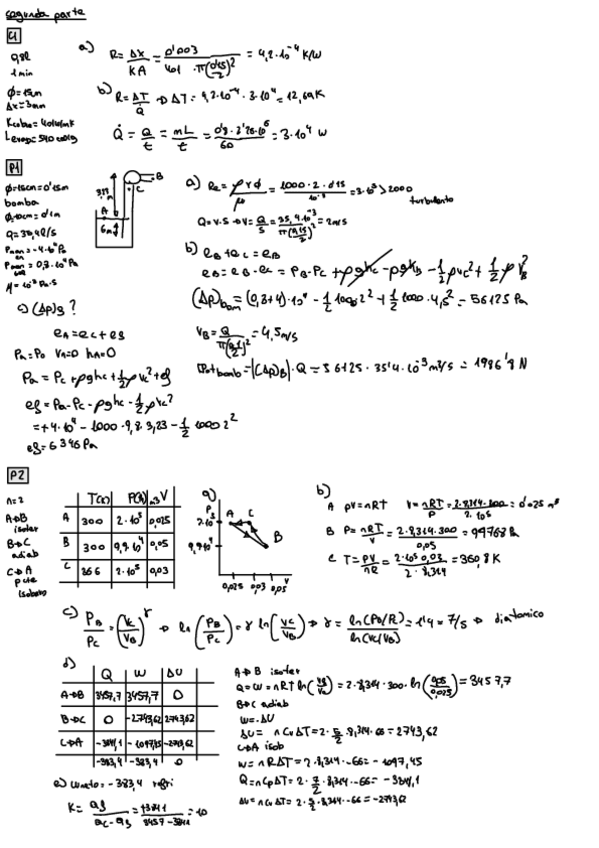 segunda parte
C1
0,8l
1 min
φ=15cm
Δx=3mm
a) R = Δx/KA = 0'003/(401 · π(0'15/2)²) = 4,2·10⁻⁴ K/W
b) R = ΔT/Q̇ → ΔT = 4,2·10⁻⁴ · 3·10⁴ = 12,69K
Q̇ = Q/t = mL/t = 0'8 · 2'26·10⁶/60 = 3·10⁴ W
P1
φ=15cm=0'15m
bomba
φ=10cm=0'1m
Q=35,4l/s
μ=10⁻³ Pa·s
A
B
C
6m
a) Re = ρvφ/μ = 1000·2·0'15/10⁻³ = 3·10⁵ > 2000
turbulento
Q=v·S → v = Q/S = 35,4·10⁻³/π(0,15/2)² = 2m/s
b) eB + eC = eB
eB = eB - eC = PB - PC + ρghC - ρghB - ½ρvC² + ½ρvB²
(Δp)bom = (0,3+4)·10⁴ - ½ 1000·2² + ½ 1000·4,5² = 56125 Pa
vB = Q/π(0,1/2)² = 4,5m/s
Potbomb = |(Δp)B|·Q = 56125 · 35'4·10⁻³ m³/s = 1986'8 N
c) (Δp)g ?
eA = eC + eg
PA=P0 vA=0 hA=0
PA = PC + ρghC + ½ρvC² + eg
eg = PA - PC - ρghC - ½ρvC²
= +4·10⁴ - 1000·9,8·3,23 - ½ 1000 2²
eg = 6346 Pa
P2
n=2
A→B
isoter
B→C
adiab
C→A
isobara
T(K) P(Pa) m³ V
A 300 2·10⁵ 0,025
B 300 9,9·10⁴ 0,05
C 366 2·10⁵ 0,03
a)
P
2·10⁵
9,9·10⁴
A C
B
0,025 0,03 0,05 V
b)
A pV=nRT V = nRT/P = 2·8,314·300/2·10⁵ = 0'025 m³
B P = nRT/V = 2·8,314·300/0,05 = 99768 Pa
C T = PV/nR = 2·10⁵·0,03/2·8,314 = 360,8 K
c) PB/PC = (VC/VB)^γ → ln(PB/PC) = γ ln(VC/VB) → γ = ln(PB/PC)/ln(VC/VB) = 1'4 = 7/5 → diatomico
d)
Q W ΔU
A→B 3457,7 3457,7 0
B→C 0 -2743,62 2743,62
C→A -3841,1 -1097,45 -2743,62
-383,4 -383,4 0
A→B isoter
Q = W = nRT ln(VB/VA) = 2·8,314·300·ln(0,05/0,025) = 3457,7
B→C adiab
W = -ΔU
ΔU = nCvΔT = 2·5/2·8,314·66 = 2743,62
C→A isob
W = nRΔT = 2·8,314·-66 = -1097,45
Q = nCpΔT = 2·7/2·8,314·-66 = -3841,1
ΔU = nCvΔT = 2·5/2·8,314·-66 = -2743,62
e) Wneto = -383,4 refri